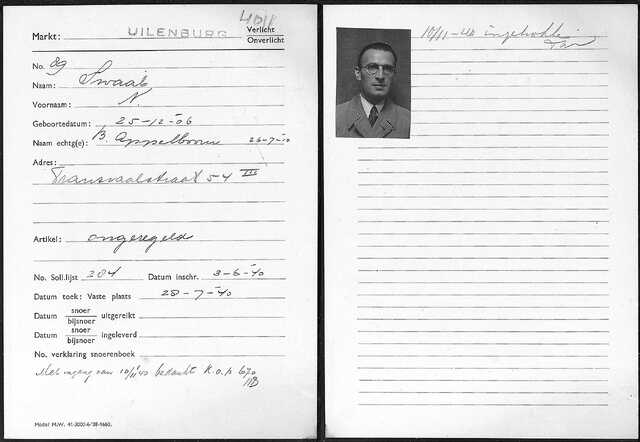 4011
Markt: UILENBURG Verlicht
Onverlicht
No. 89
Naam: Swaab
Voornaam: N.
Geboortedatum: 25-12-'06
Naam echtg(e): B. Appelboom 26-7-'10
Adres:
Transvaalstraat 54 III
Artikel: ongeregeld
No. Soll.lijst 204 Datum inschr. 3-6-'40
Datum toek: Vaste plaats 28-7-'40
Datum snoer
bijsnoer uitgereikt
Datum snoer
bijsnoer ingeleverd
No. verklaring snoerenboek
Met ingang van 10/11 '40 bedankt K.o.p.
Model M.W. 41-3000-6-'38-1660.
10/11-40 ingetrokken